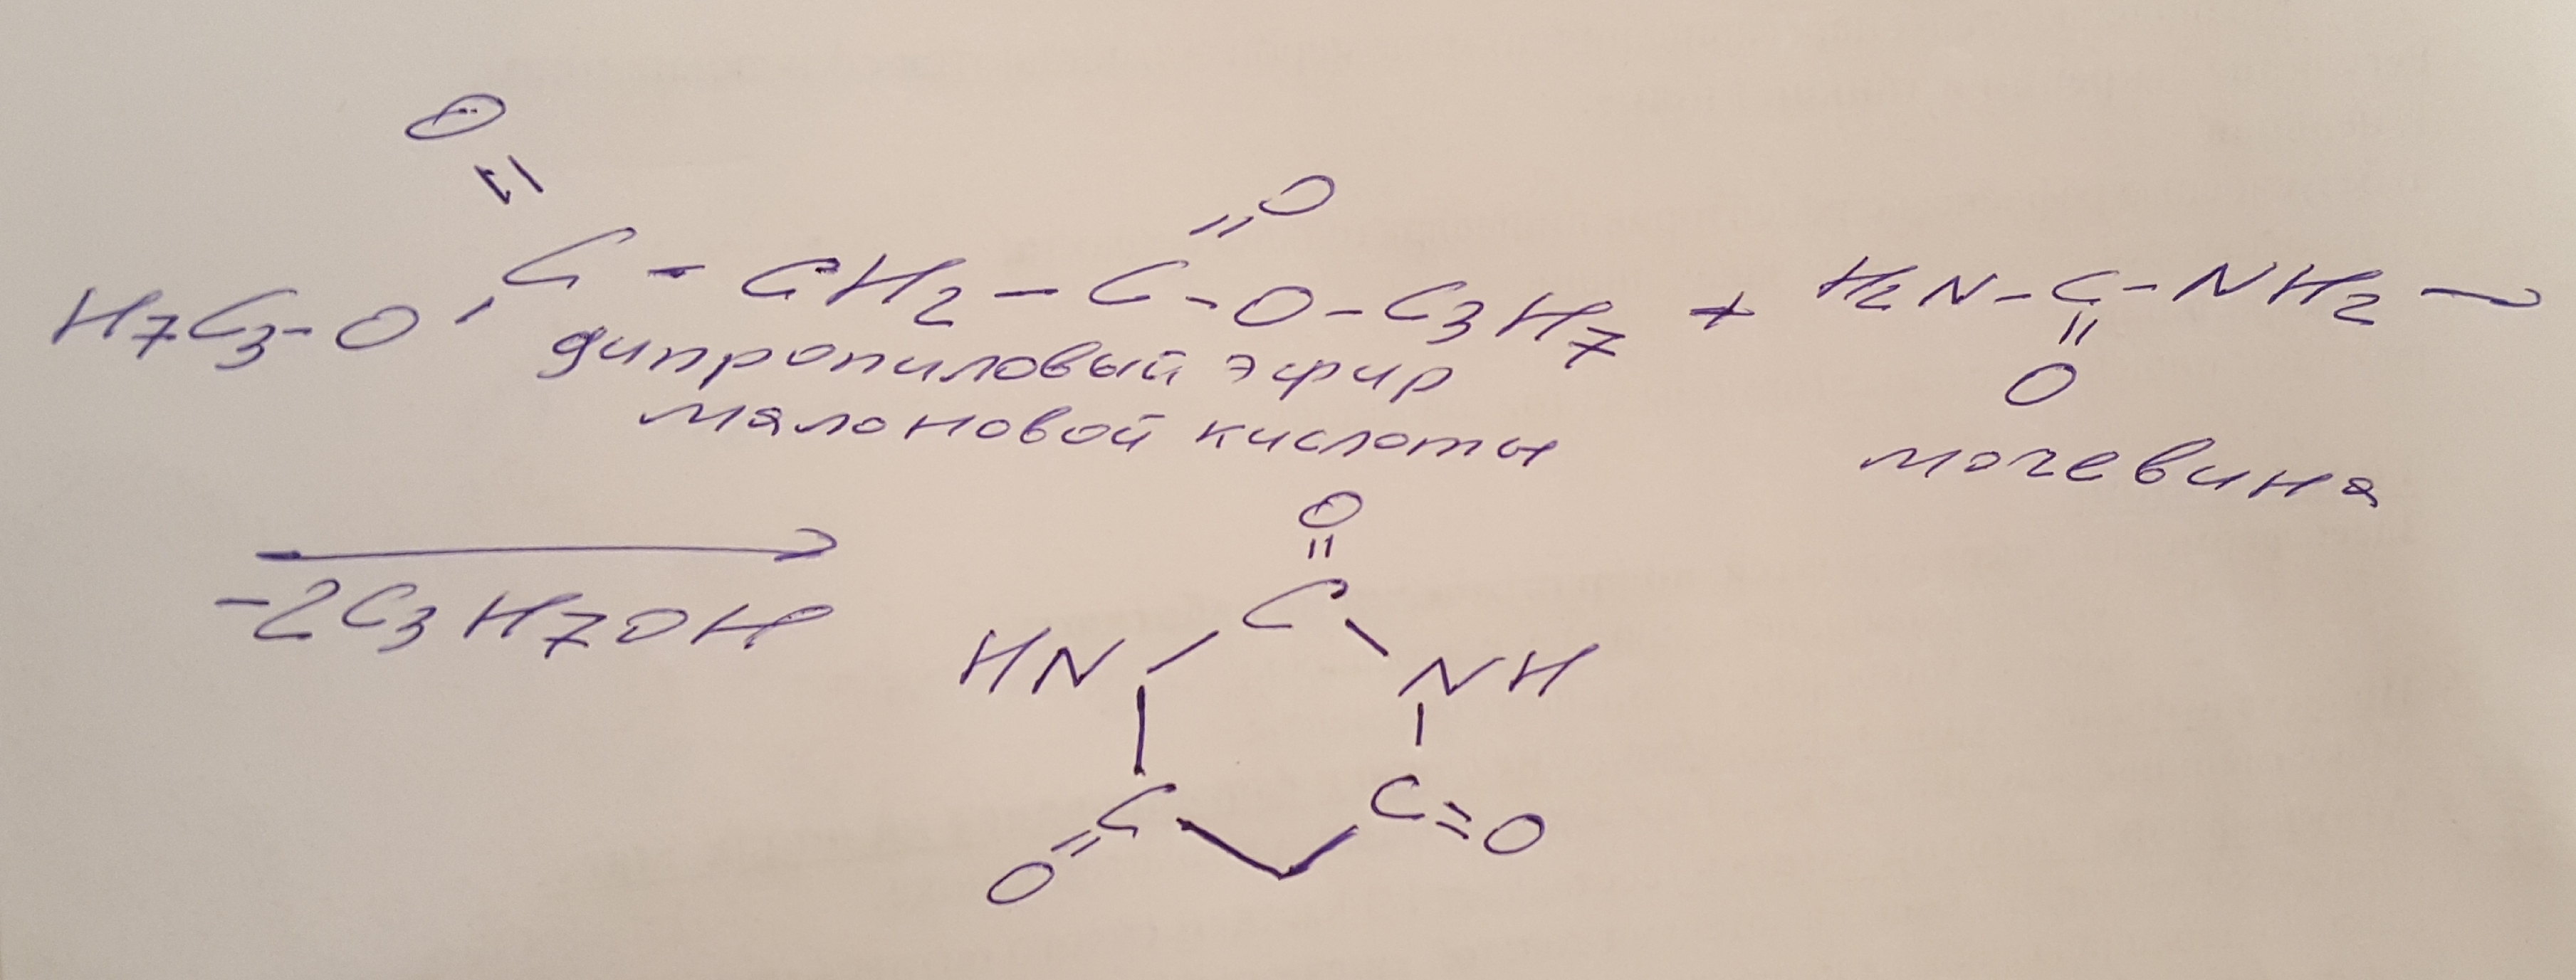 O O
|| ||
H7C3-O-C-CH2-C-O-C3H7 + H2N-C-NH2 →
||
O
дипропиловый эфир
малоновой кислоты
мочевина
→
-2C3H7OH
O
||
C
HN NH
C C=O
O=